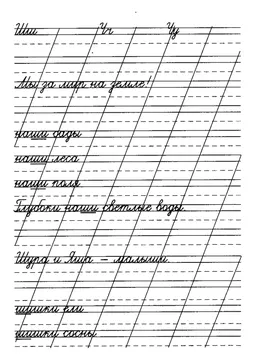 Шш Чч Чу
Мы за мир на земле!
наши сады
наши леса
наши поля
Глубоки наши светлые воды.
Шура и Яша — малыши.
шишки ели
шишки сосны